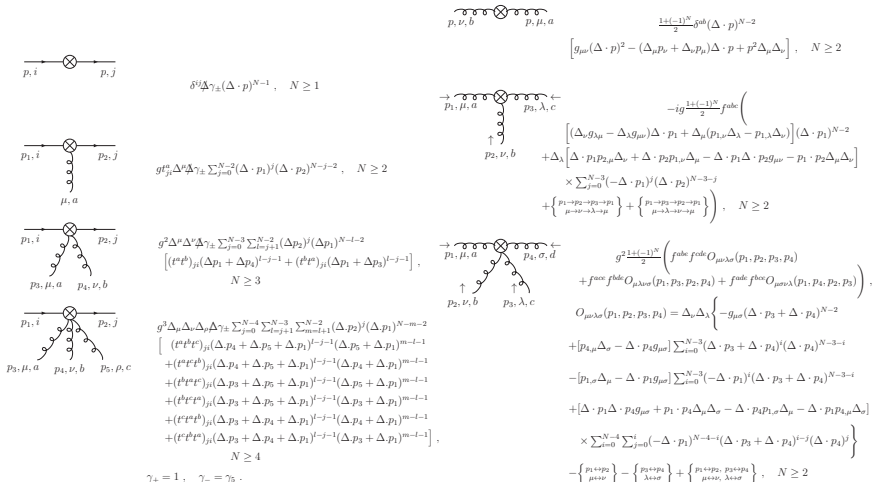 p, i p, j
δ^{ij} Δ̸ γ_± (Δ · p)^{N−1} , N ≥ 1
p_1, i p_2, j
μ, a
g t^a_{ji} Δ^μ Δ̸ γ_± ∑_{j=0}^{N−2} (Δ · p_1)^j (Δ · p_2)^{N−j−2} , N ≥ 2
p_1, i p_2, j
p_3, μ, a p_4, ν, b
g^2 Δ^μ Δ^ν Δ̸ γ_± ∑_{j=0}^{N−3} ∑_{l=j+1}^{N−2} (Δp_2)^j (Δp_1)^{N−l−2}
[ (t^a t^b)_{ji} (Δp_1 + Δp_4)^{l−j−1} + (t^b t^a)_{ji} (Δp_1 + Δp_3)^{l−j−1} ] ,
N ≥ 3
p_1, i p_2, j
p_3, μ, a p_4, ν, b p_5, ρ, c
g^3 Δ_μ Δ_ν Δ_ρ Δ̸ γ_± ∑_{j=0}^{N−4} ∑_{l=j+1}^{N−3} ∑_{m=l+1}^{N−2} (Δ.p_2)^j (Δ.p_1)^{N−m−2}
[ (t^a t^b t^c)_{ji} (Δ.p_4 + Δ.p_5 + Δ.p_1)^{l−j−1} (Δ.p_5 + Δ.p_1)^{m−l−1}
+(t^a t^c t^b)_{ji} (Δ.p_4 + Δ.p_5 + Δ.p_1)^{l−j−1} (Δ.p_4 + Δ.p_1)^{m−l−1}
+(t^b t^a t^c)_{ji} (Δ.p_3 + Δ.p_5 + Δ.p_1)^{l−j−1} (Δ.p_5 + Δ.p_1)^{m−l−1}
+(t^b t^c t^a)_{ji} (Δ.p_3 + Δ.p_5 + Δ.p_1)^{l−j−1} (Δ.p_3 + Δ.p_1)^{m−l−1}
+(t^c t^a t^b)_{ji} (Δ.p_3 + Δ.p_4 + Δ.p_1)^{l−j−1} (Δ.p_4 + Δ.p_1)^{m−l−1}
+(t^c t^b t^a)_{ji} (Δ.p_3 + Δ.p_4 + Δ.p_1)^{l−j−1} (Δ.p_3 + Δ.p_1)^{m−l−1} ] ,
N ≥ 4
γ_+ = 1 , γ_− = γ_5 .
p, ν, b p, μ, a
\frac{1+(−1)^N}{2} δ^{ab} (Δ · p)^{N−2}
[ g_{μν} (Δ · p)^2 − (Δ_μ p_ν + Δ_ν p_μ) Δ · p + p^2 Δ_μ Δ_ν ] , N ≥ 2
→ ←
p_1, μ, a p_3, λ, c
↑
p_2, ν, b
−ig \frac{1+(−1)^N}{2} f^{abc} (
[ (Δ_ν g_{λμ} − Δ_λ g_{μν}) Δ · p_1 + Δ_μ (p_{1,ν} Δ_λ − p_{1,λ} Δ_ν) ] (Δ · p_1)^{N−2}
+Δ_λ [ Δ · p_1 p_{2,μ} Δ_ν + Δ · p_2 p_{1,ν} Δ_μ − Δ · p_1 Δ · p_2 g_{μν} − p_1 · p_2 Δ_μ Δ_ν ]
× ∑_{j=0}^{N−3} (−Δ · p_1)^j (Δ · p_2)^{N−3−j}
+ { p_1→p_2→p_3→p_1 μ→ν→λ→μ } + { p_1→p_3→p_2→p_1 μ→λ→ν→μ } ) , N ≥ 2
→ ←
p_1, μ, a p_4, σ, d
↑ ↑
p_2, ν, b p_3, λ, c
g^2 \frac{1+(−1)^N}{2} ( f^{abe} f^{cde} O_{μνλσ} (p_1, p_2, p_3, p_4)
+f^{ace} f^{bde} O_{μλνσ} (p_1, p_3, p_2, p_4) + f^{ade} f^{bce} O_{μσνλ} (p_1, p_4, p_2, p_3) ) ,
O_{μνλσ} (p_1, p_2, p_3, p_4) = Δ_ν Δ_λ { −g_{μσ} (Δ · p_3 + Δ · p_4)^{N−2}
+[p_{4,μ} Δ_σ − Δ · p_4 g_{μσ}] ∑_{i=0}^{N−3} (Δ · p_3 + Δ · p_4)^i (Δ · p_4)^{N−3−i}
−[p_{1,σ} Δ_μ − Δ · p_1 g_{μσ}] ∑_{i=0}^{N−3} (−Δ · p_1)^i (Δ · p_3 + Δ · p_4)^{N−3−i}
+[Δ · p_1 Δ · p_4 g_{μσ} + p_1 · p_4 Δ_μ Δ_σ − Δ · p_4 p_{1,σ} Δ_μ − Δ · p_1 p_{4,μ} Δ_σ]
× ∑_{i=0}^{N−4} ∑_{j=0}^{i} (−Δ · p_1)^{N−4−i} (Δ · p_3 + Δ · p_4)^{i−j} (Δ · p_4)^j }
− { p_1↔p_2 μ↔ν } − { p_3↔p_4 λ↔σ } + { p_1↔p_2, p_3↔p_4 μ↔ν, λ↔σ } , N ≥ 2